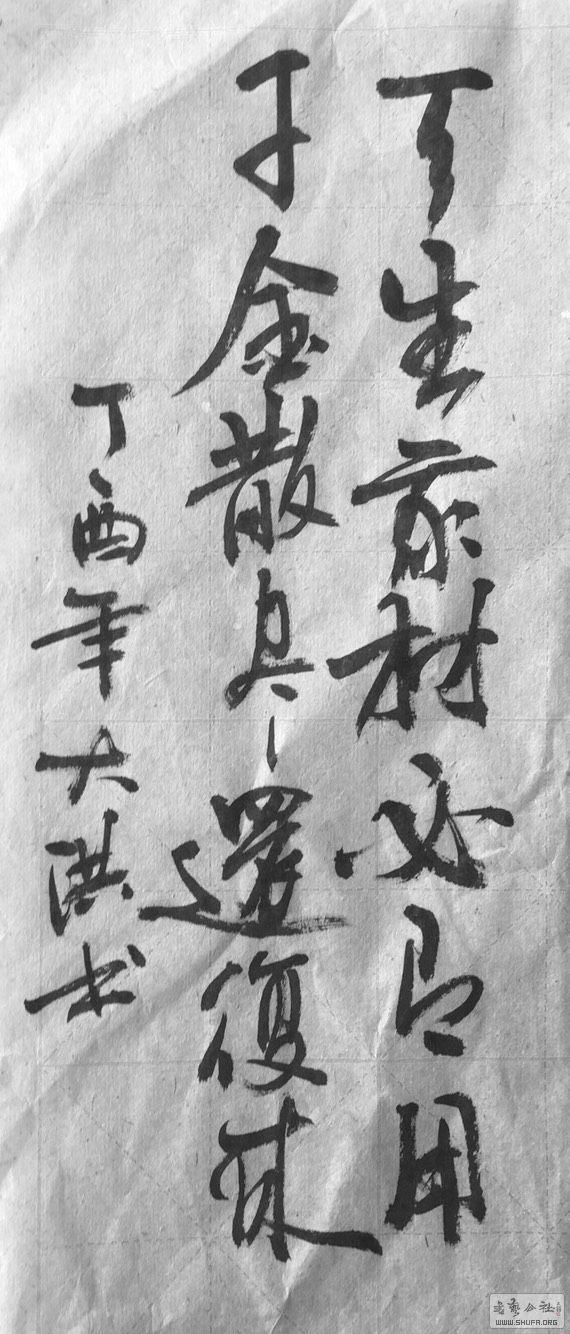 天生我材必有用
千金散尽還復来
丁酉年大洪书
書藝公社
WWW.SHUFA.ORG